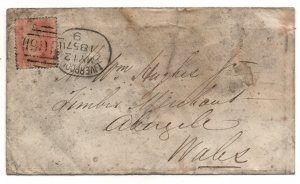 LIVERPOOL
MY 12
1857
9
Wm Hughes
Timber Merchant
Abergele
Wales